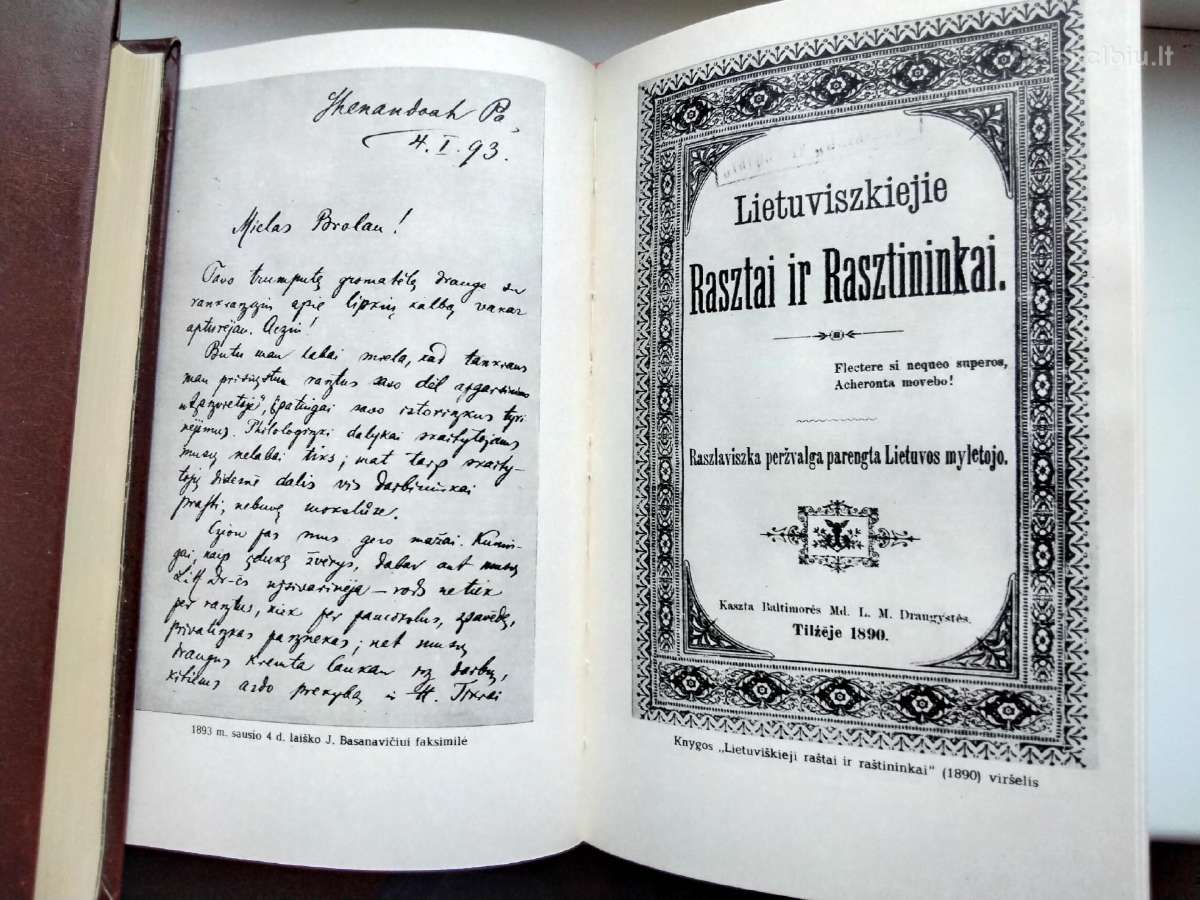 Shenandoah Pa,
4. I. 93.
Mielas Brolau!
Tavo trumputę gromatėlę drauge su
apie kalbą vakar
apturėjau. Acziu!
Butu man labai miela, kad tankiaus
man savo dėl apgarsinimo
ypatingai savo istoriszkus tyri
nėjimus. Philologiszki dalykai skaitytojams
musų nelabai tiks; mat tarp skaity-
tojų didesnė dalis vis darbininkai
prasti, nebuvę moksluose.
Czion pas mus gero mažai. Kunin-
gai, kaip žvėrys, dabar ant musų
Lit. Dr-ės užsivarinėja – rods ne tiek
per rasztus, kiek per pamokslus, spaviedę,
privatiszkas pasznekas; net musų
draugus kremta laukan isz darbų,
kitiems ardo prekybą ir tt. Tikrai
1893 m. sausio 4 d. laiško J. Basanavičiui faksimilė
Lietuviszkiejie
Rasztai ir Rasztininkai.
Flectere si nequeo superos,
Acheronta movebo!
Raszlaviszka peržvalga parengta Lietuvos myletojo.
Kaszta Baltimorės Md. L. M. Draugystės.
Tilžėje 1890.
Knygos „Lietuviškieji raštai ir raštininkai" (1890) viršelis